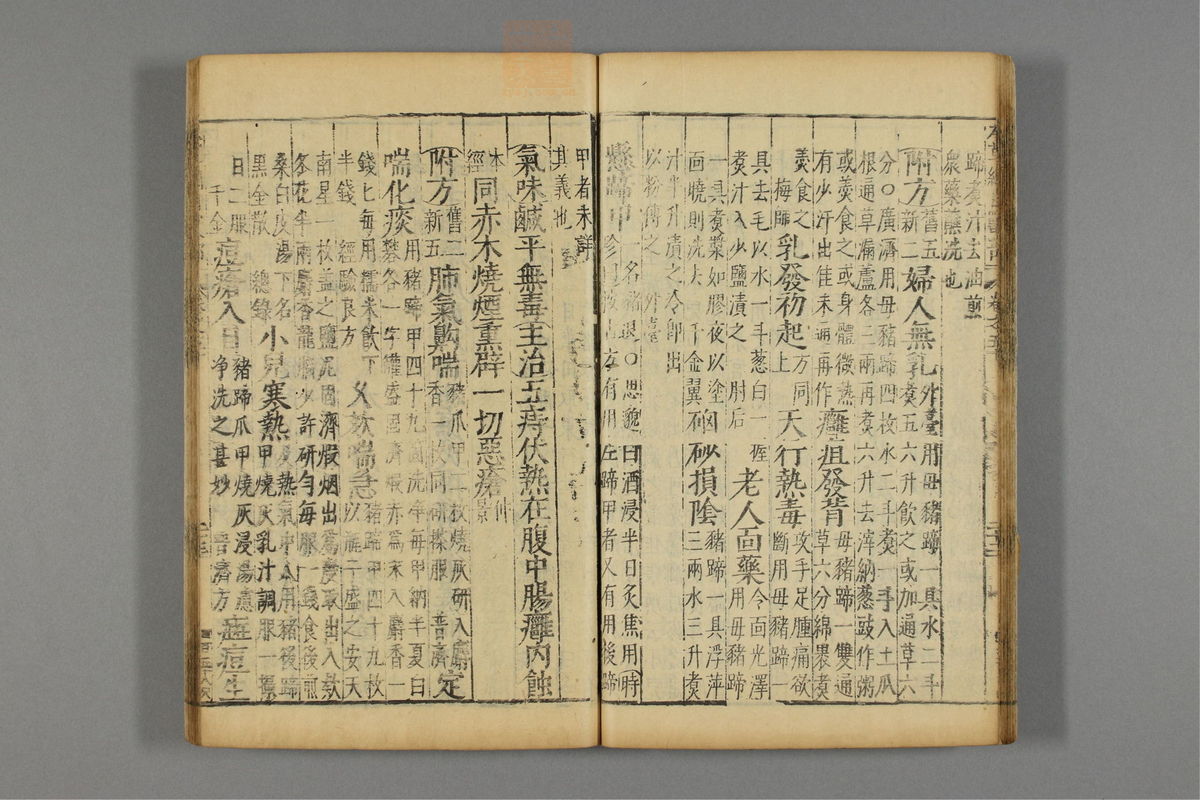 蹄煑汁去油煎
衆藥蘸洗也
附方舊五新二婦人無乳外臺用母豬蹄一具水二斗煑五六升飲之或加通草六
分○廣濟用母豬蹄四枚水二斗煑一斗入土瓜
根通草漏蘆各三兩再煑六升去滓納葱豉作粥
或羹食之或身體微熱
有少汗出佳未通再作癰疽發背母豬蹄一雙通草六分綿裹煑
羹食之
梅師乳發初起上方同天行熱毒攻手足腫痛欲斷用母豬蹄一
具去毛以水一斗葱白一握
煑汁入少鹽漬之 肘后老人面藥令面光澤用母豬蹄
一具煑漿如膠夜以塗
面曉則洗去 千金翼硇砂損陰豬蹄一具浮萍三兩水三升煑
汁半升漬之冷即出
以粉傅之 外臺
懸蹄甲一名豬退○思邈曰酒浸半日炙焦用時珍曰
方有用左蹄甲者又有用後蹄
甲者未詳
其義也
氣味鹹平無毒主治五痔伏熱在腹中腸癰內蝕
本經同赤木燒煙熏辟一切惡瘡
附方舊二新五肺氣齁喘豬爪甲二枚燒灰研入麝香一枚同研
服 普濟定
喘化痰用豬蹄甲四十九個洗淨每甲納半夏白礬各一字罐
固濟煅赤爲末入麝香一
錢匕每用糯米飲下
半錢 經驗良方久欬喘急豬蹄甲四十九枚以
子盛之安天
南星一枚蓋之鹽泥固濟煅烟出爲度取出入款
冬花半兩麝香龍腦少許研勻每服一錢食後煎
桑白皮湯下名
黑金散 總錄小兒寒熱及熱氣中人用豬後蹄甲燒灰乳汁調服一撮
日二服
千金痘瘡入目豬蹄爪甲燒灰浸湯濾淨洗之甚妙 普濟方痘生